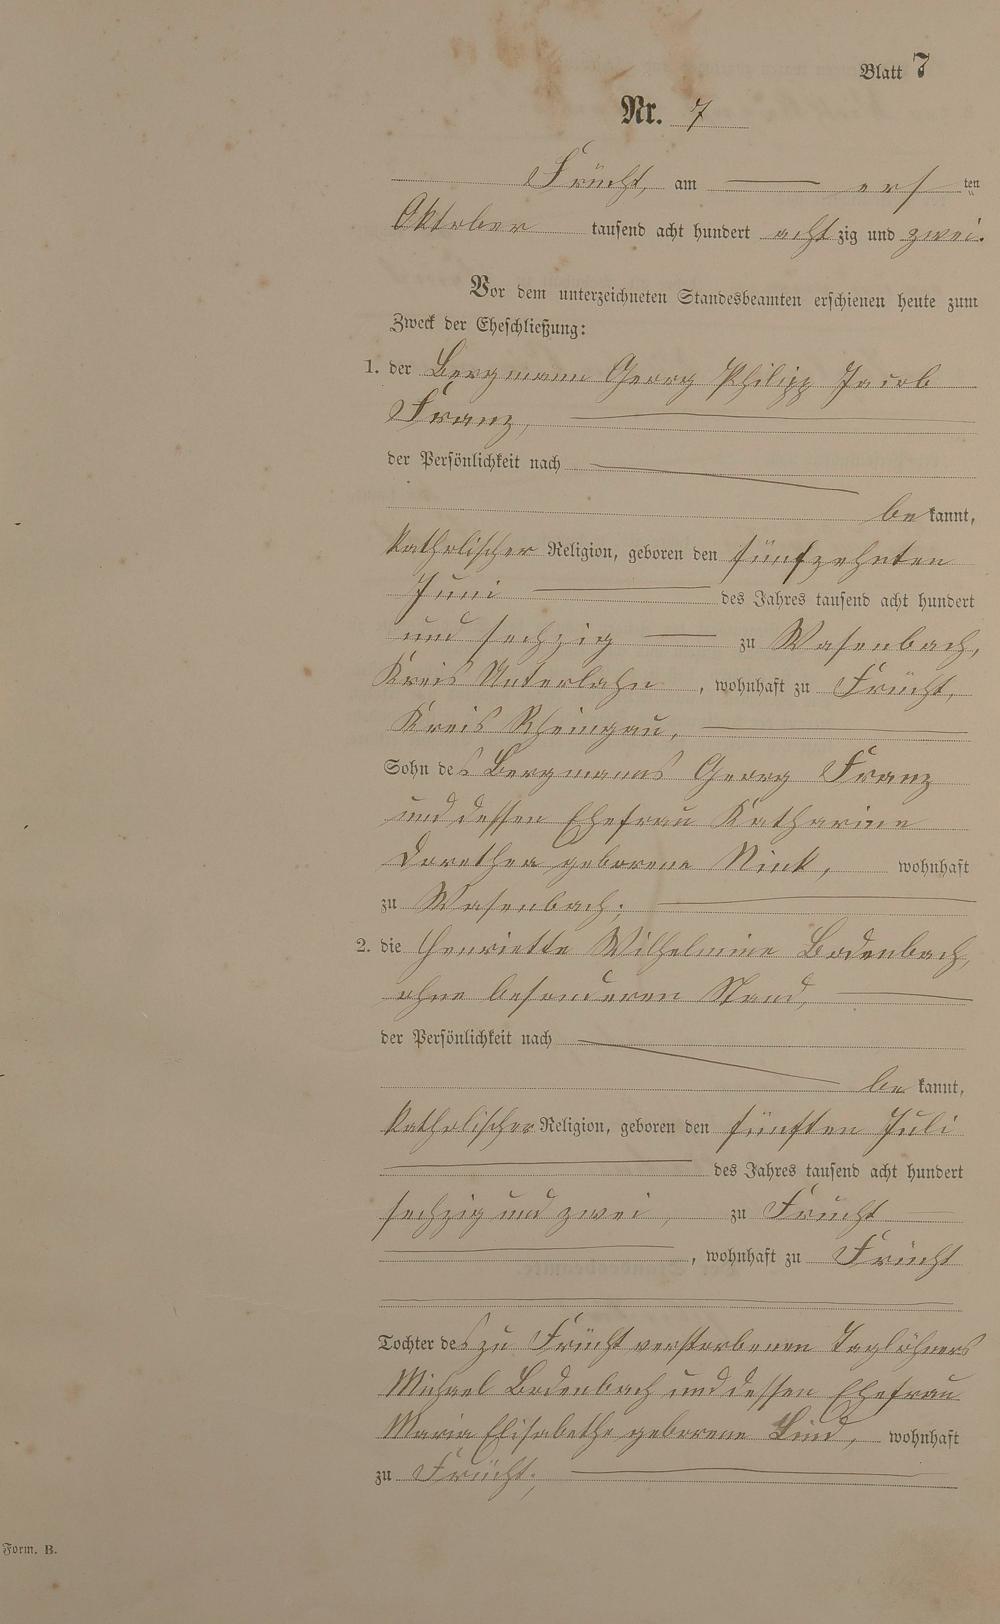 Blatt 7
Nr. 7
Frücht, am ersten
Oktober tausend acht hundert achtzig und zwei.
Vor dem unterzeichneten Standesbeamten erschienen heute zum
Zweck der Eheschließung:
1. der Bergmann Georg Philipp Jacob
Franz,
der Persönlichkeit nach
bekannt,
katholischer Religion, geboren den fünfzehnten
Juni des Jahres tausend acht hundert
und sechzig zu Wasenbach,
Kreis Unterlahn, wohnhaft zu Frücht,
Kreis Rheingau,
Sohn des Bergmanns Georg Franz
und dessen Ehefrau Katharine
Dorothea geborene Nink, wohnhaft
zu Wasenbach;
2. die Henriette Wilhelmine Bodenbach,
ohne besonderen Stand,
der Persönlichkeit nach
bekannt,
katholischer Religion, geboren den fünften Juli
des Jahres tausend acht hundert
sechzig und zwei, zu Frücht
, wohnhaft zu Frücht
Tochter des zu Frücht verstorbenen Taglöhners
Michael Bodenbach und dessen Ehefrau
Maria Elisabethe geborene Lind, wohnhaft
zu Frücht;
Form. B.